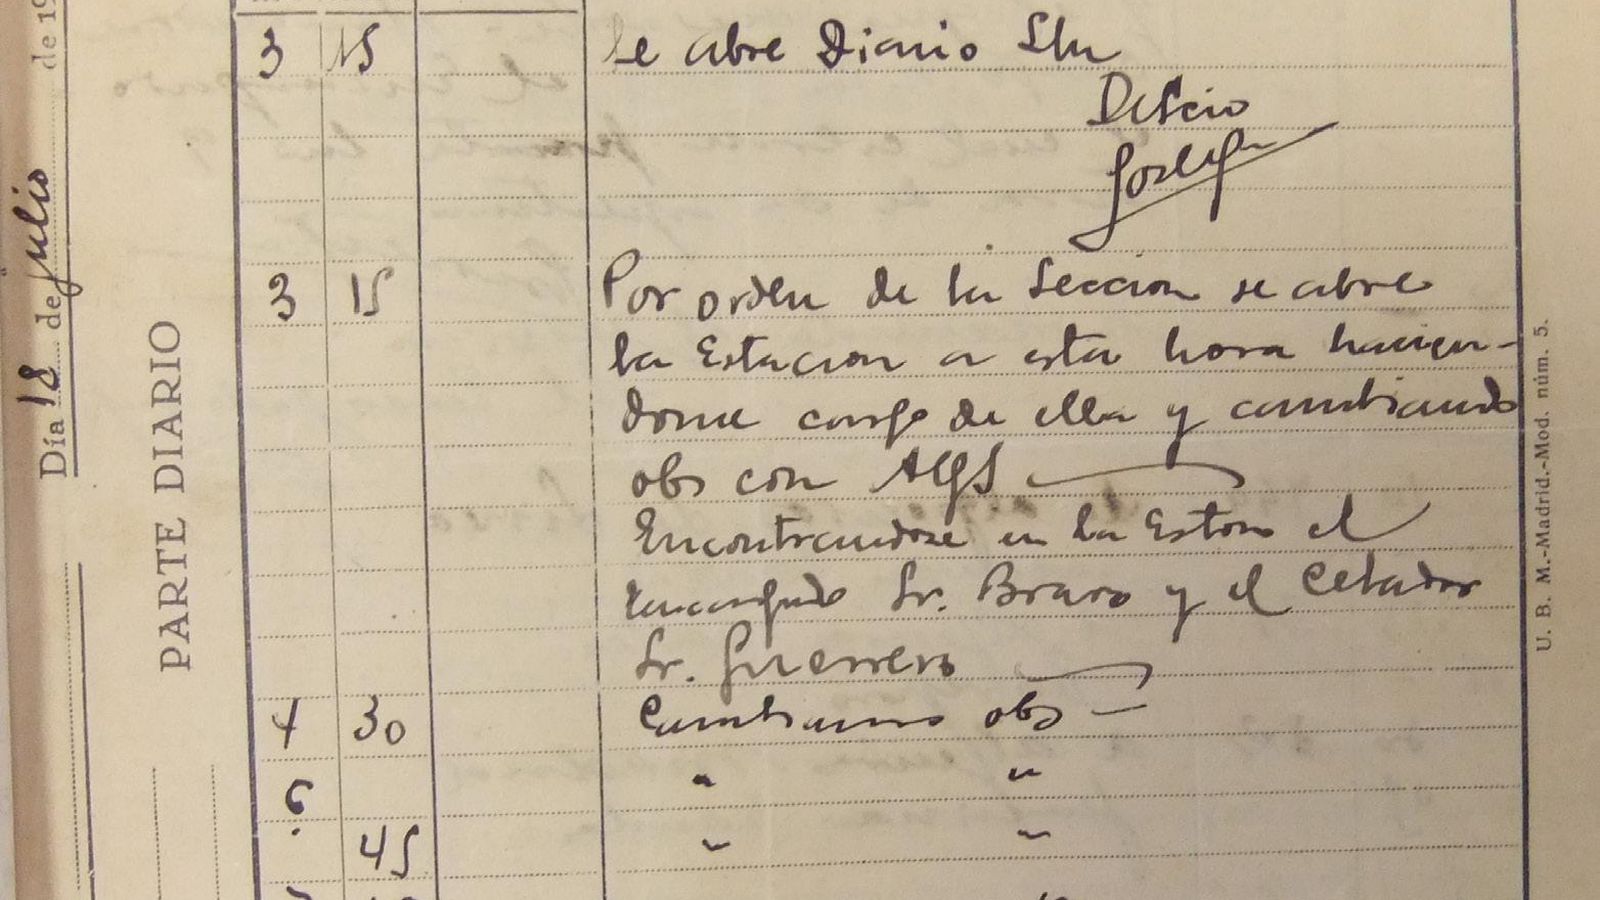 Día 18 de julio de 19
PARTE DIARIO
3 15 Se abre Diario
3 15 Por orden de la Seccion se abre
la Estacion a esta hora hacien-
dome cargo de ella y cambiando
obs con
Encontrandose en la Eston el
Encargado Sr. Bravo y el Celador
Sr. Guerrero
4 30 Cambiamos obs —
6 " "
45 " "
U. B. M.-Madrid.-Mod. núm. 5.